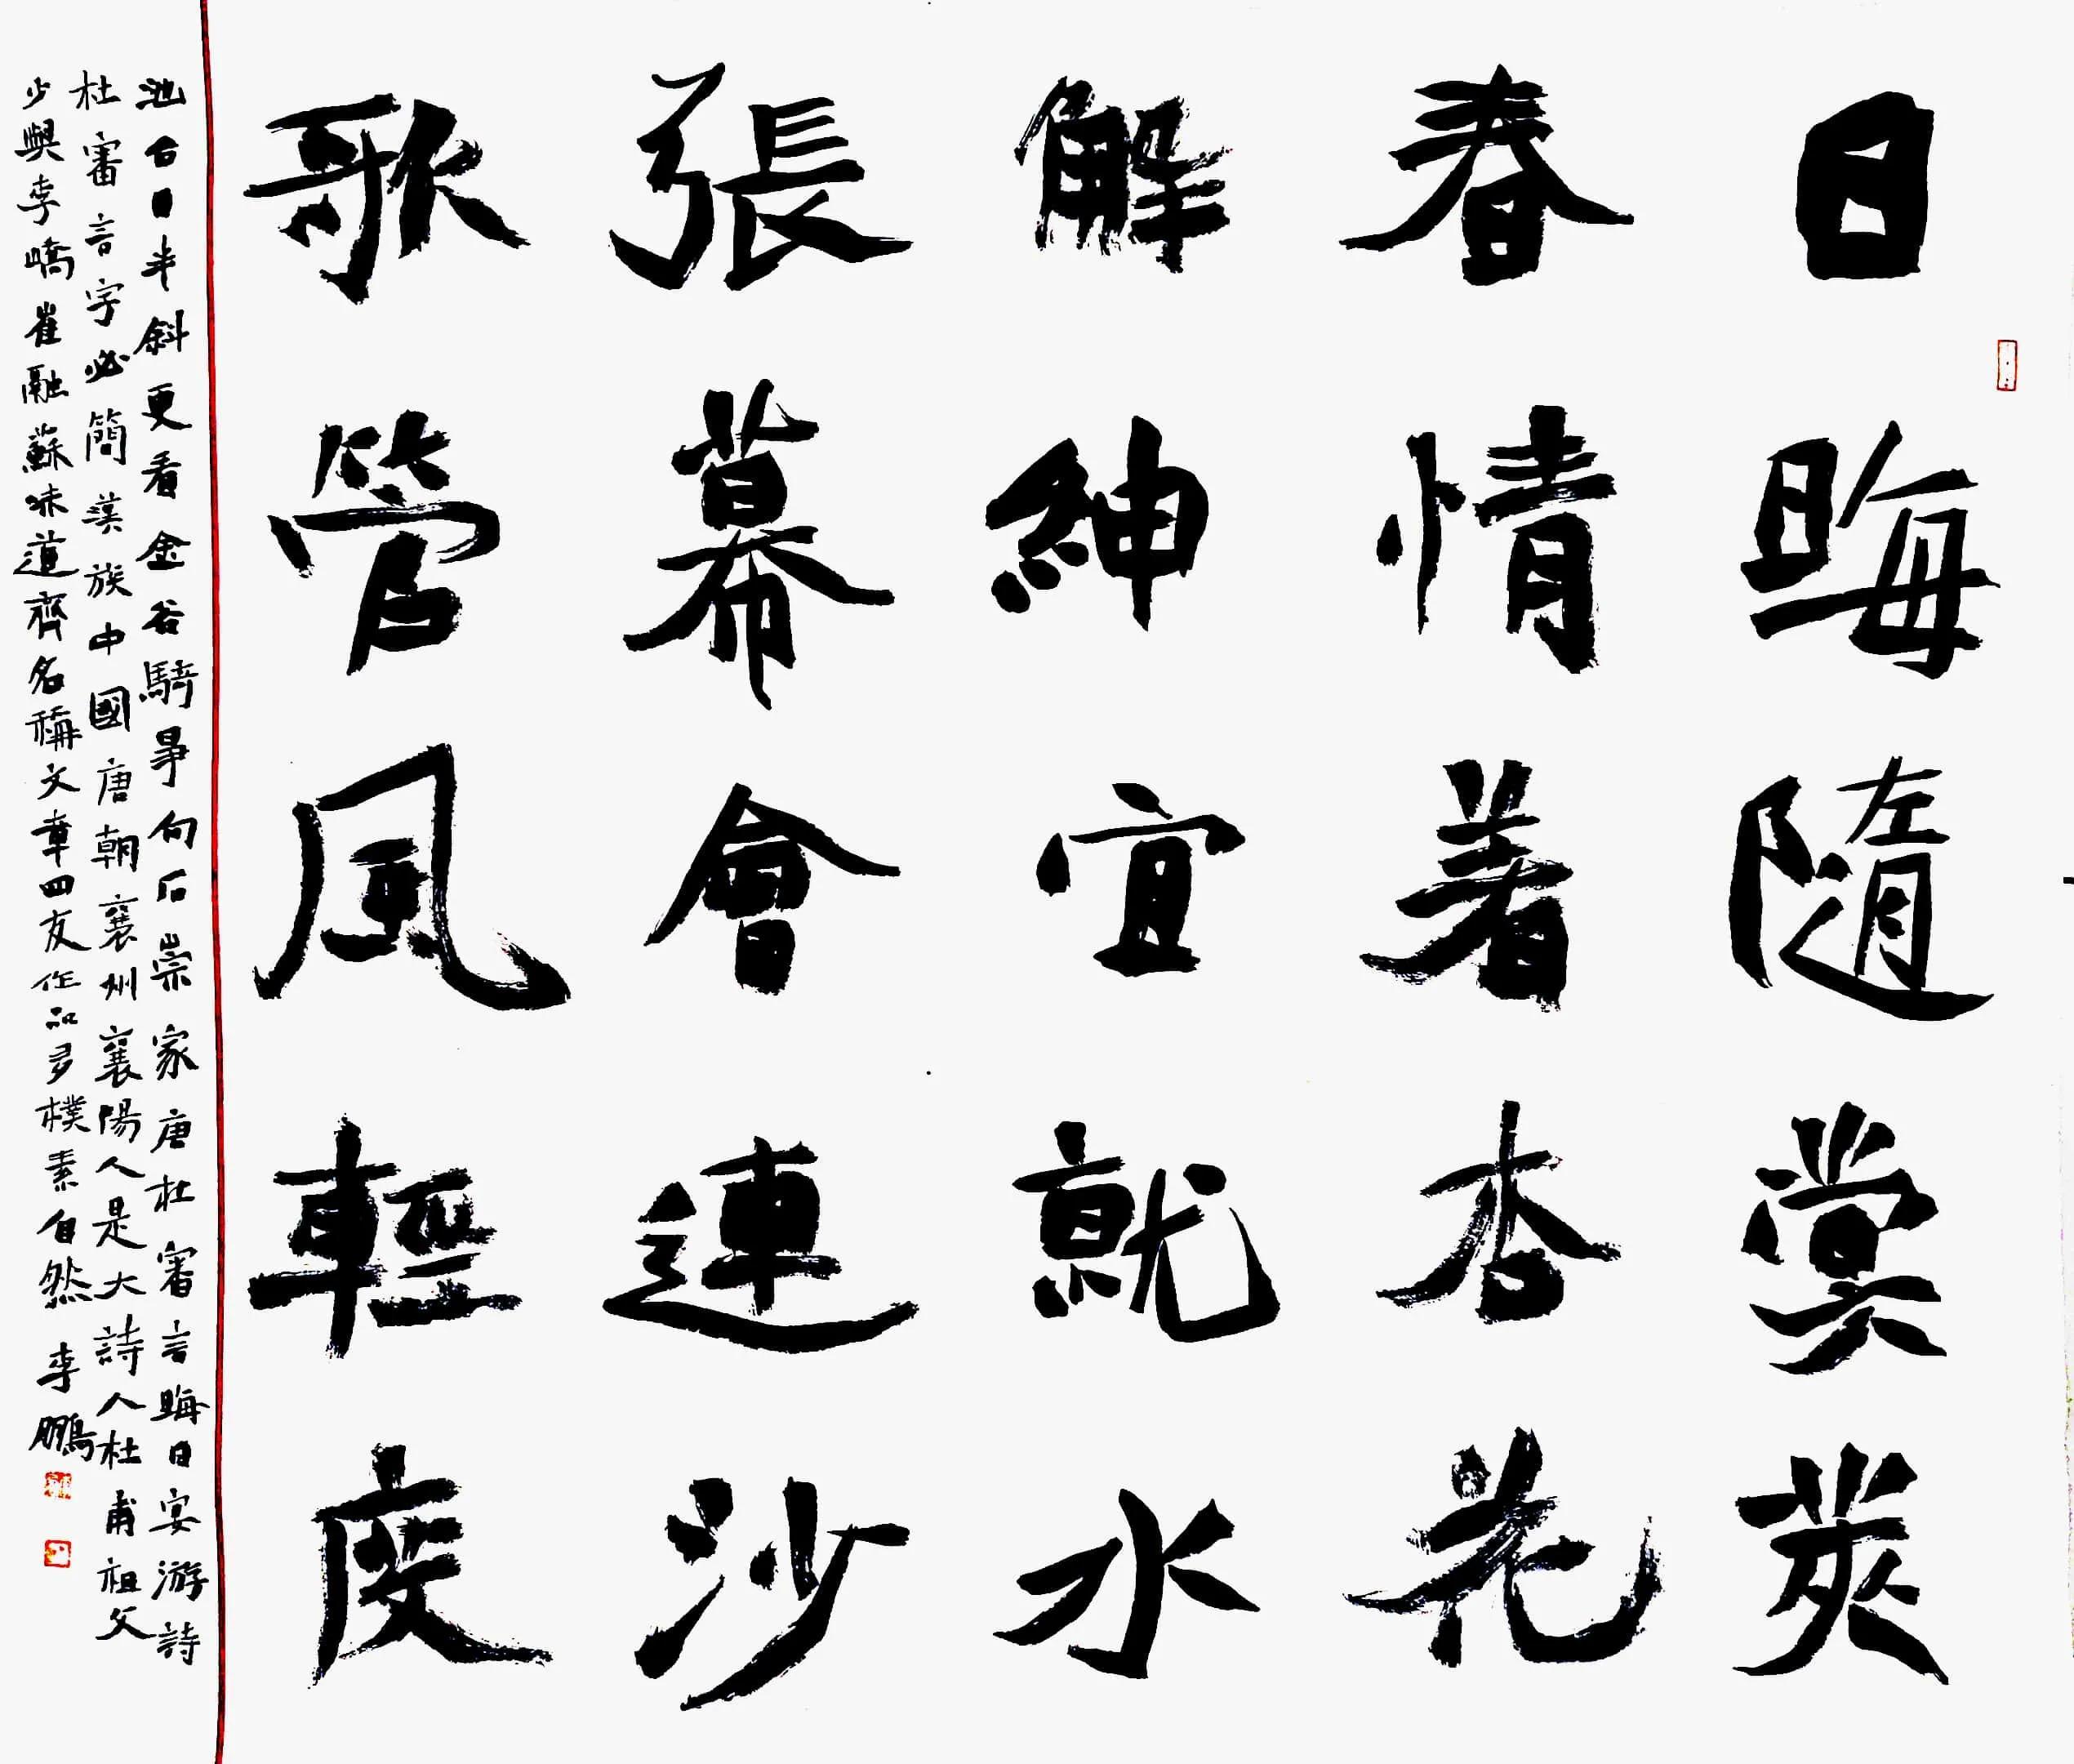 日晦隨蓂莢
春情著杏花
解紳宜就水
張幕會連沙
歌管風輕度
池台日半斜更看金谷騎爭向石崇家唐杜審言晦日宴游詩
杜審言字必簡漢族中國唐朝襄州襄陽人是大詩人杜甫祖父
少與李嶠崔融蘇味道齊名稱文章四友作品多樸素自然李鵬